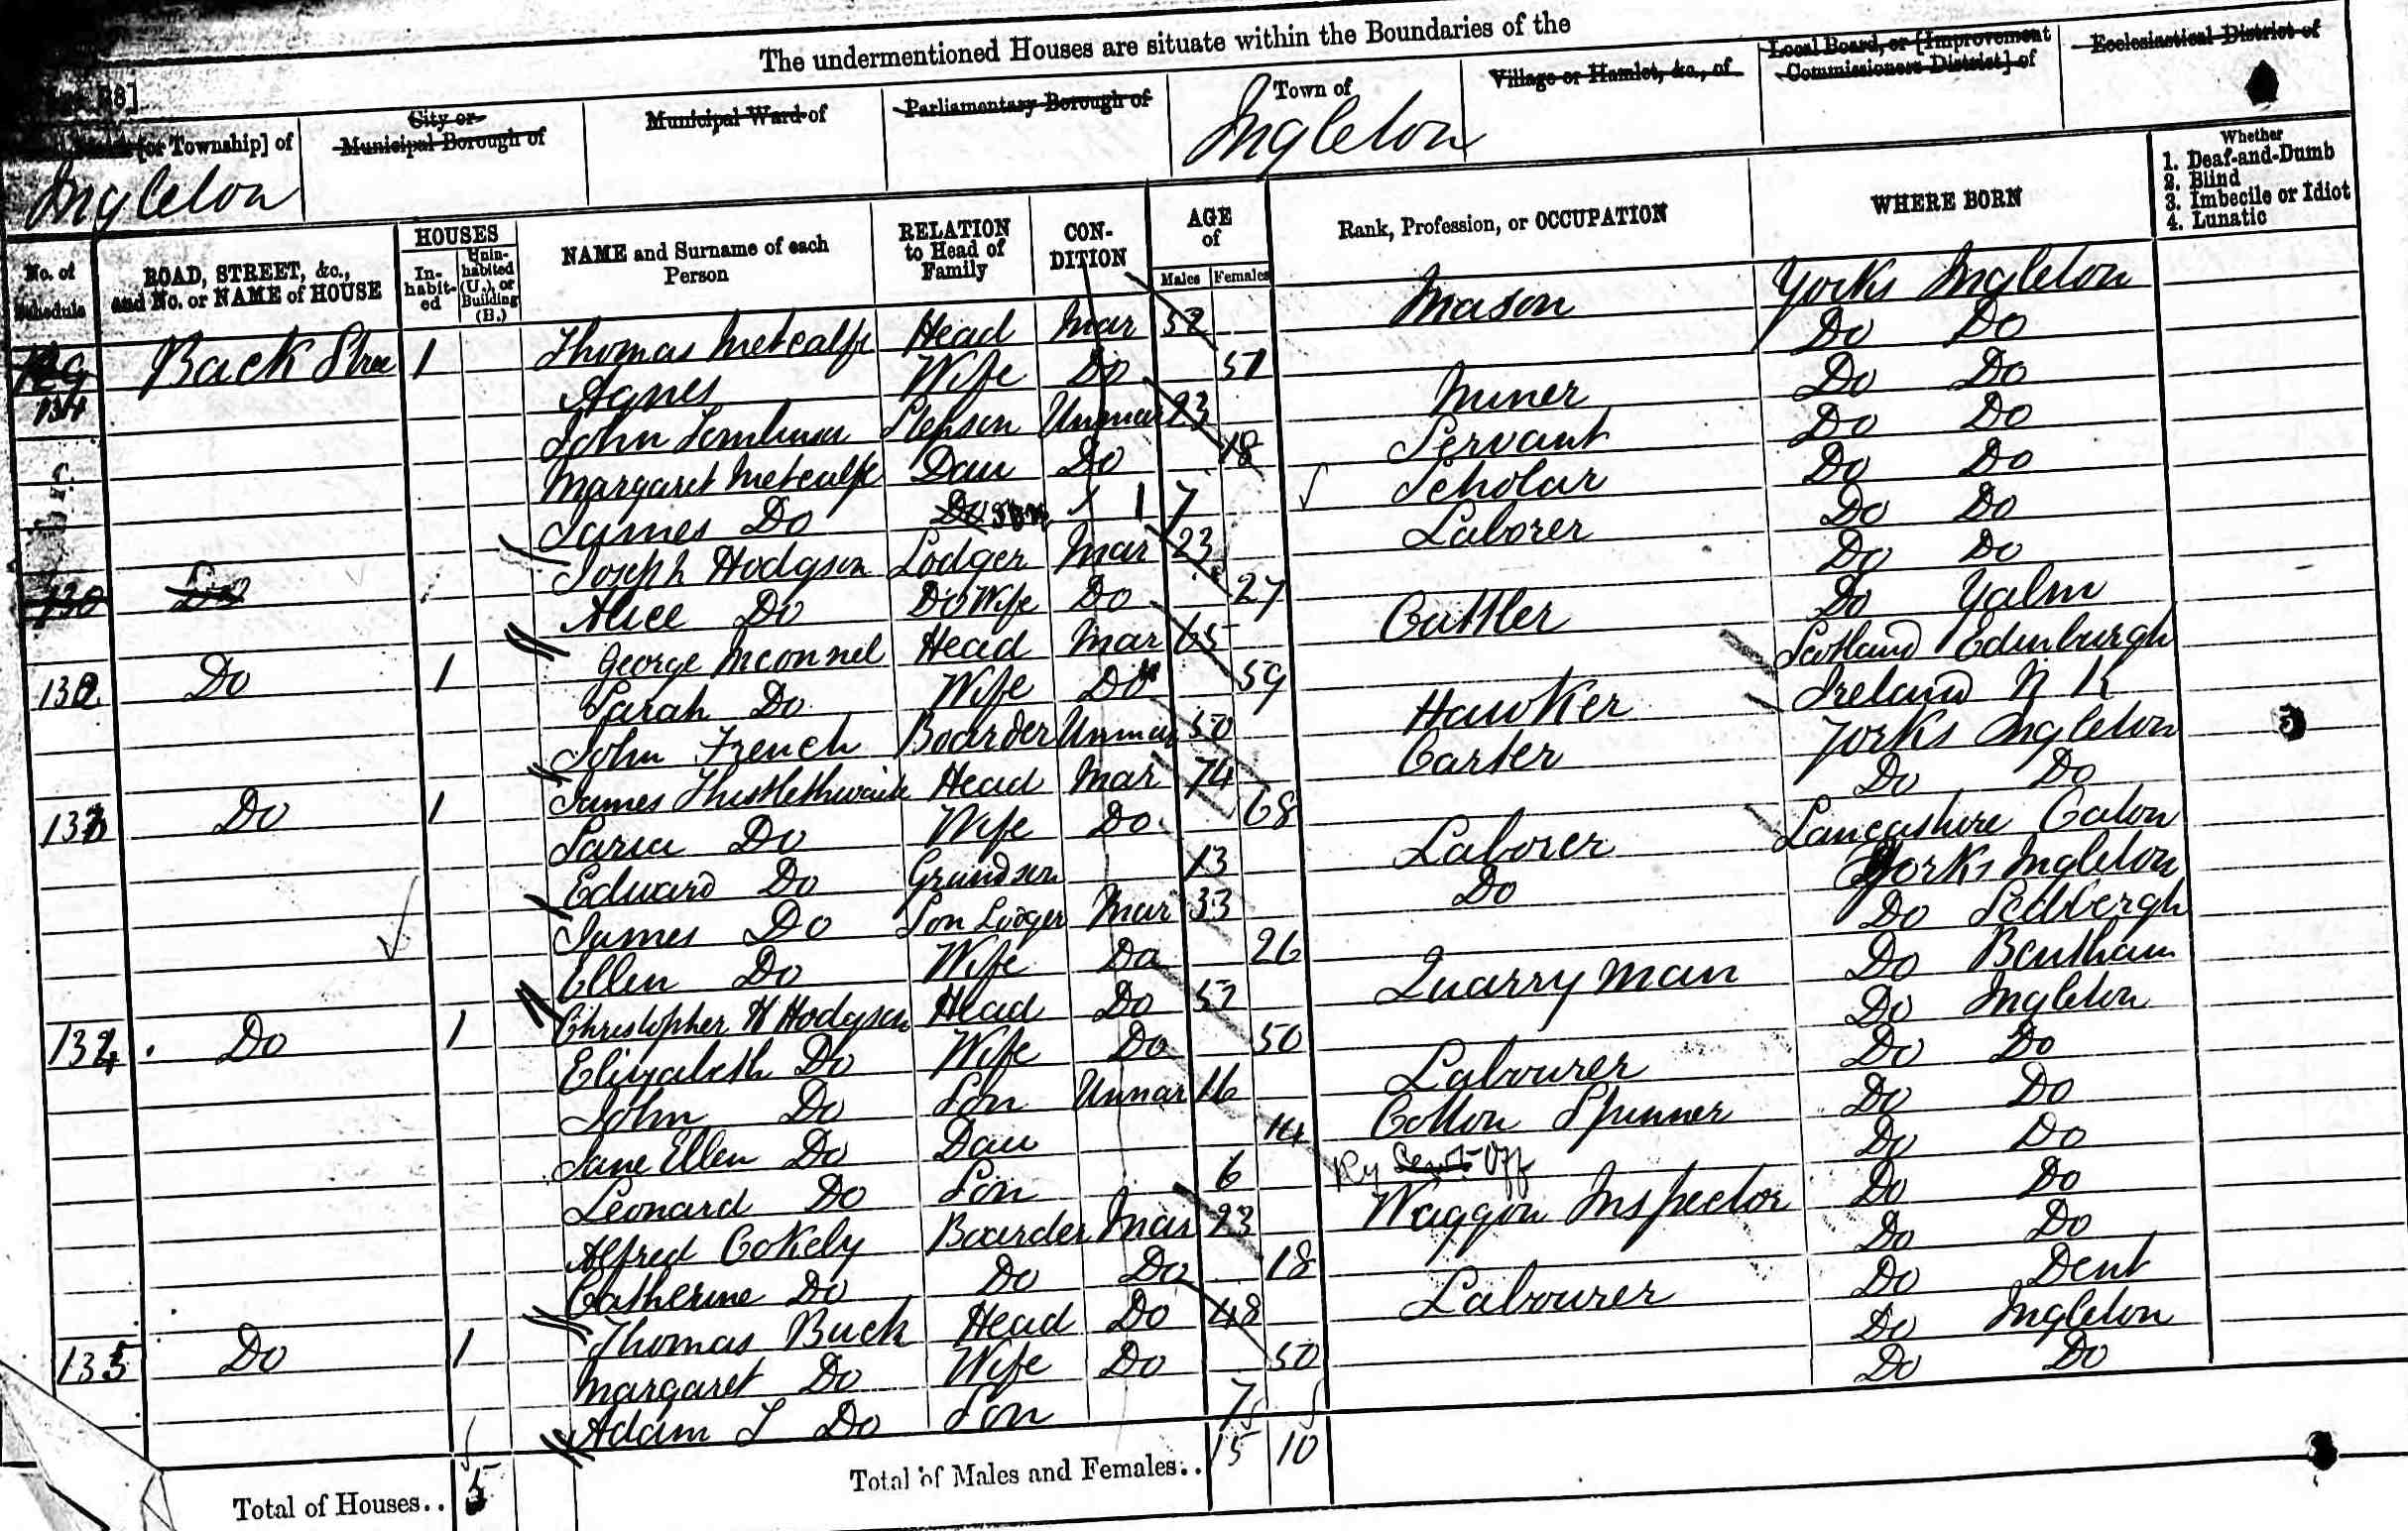 The undermentioned Houses are situate within the Boundaries of the
[or Township] of
City or Municipal Borough of
Municipal Ward of
Parliamentary Borough of
Town of
Village or Hamlet, &c., of
Local Board, or [Improvement Commissioners District] of
Ecclesiastical District of
Ingleton
Ingleton
No. of Schedule
ROAD, STREET, &c., and No. or NAME of HOUSE
HOUSES
In-habit-ed
Unin-habited (U.), or Building (B.)
NAME and Surname of each Person
RELATION to Head of Family
CON-DITION
AGE of
Males
Females
Rank, Profession, or OCCUPATION
WHERE BORN
Whether
1. Deaf-and-Dumb
2. Blind
3. Imbecile or Idiot
4. Lunatic
129 Back Stree 1 Thomas Metcalfe Head Mar 52 Mason Yorks Ingleton
131 Agnes Wife Do 51 Do Do
John Tomlinson Stepson Unmar 23 Miner Do Do
Margaret Metcalfe Dau Do 18 Servant Do Do
James Do Do Son 7 Scholar Do Do
130 Do Joseph Hodgson Lodger Mar 23 Laborer Do Do
Alice Do Do Wife Do 27 Do Do
132 Do 1 George Mconnel Head Mar 65 Cuttler Do Yalm
Sarah Do Wife Do 59 Scotland Edinburgh
John French Boarder Unmar 50 Hawker Ireland N K
133 Do 1 James Thistlethwaite Head Mar 74 Carter Yorks Ingleton
Do Wife Do 68 Do Do
Edward Do Grandson 13 Laborer Lancashire Caton
James Do Son Lodger Mar 33 Do Yorks Ingleton
Ellen Do Wife Do 26 Do Sedbergh
134 Do 1 Christopher H Hodgson Head Do 52 Quarry Man Do Bentham
Elizabeth Do Wife Do 50 Do Ingleton
John Do Son Unmar 16 Labourer Do Do
Jane Ellen Do Dau 14 Cotton Spinner Do Do
Leonard Do Son 6 Do Do
Ry Off
Alfred Cokely Boarder Mar 23 Waggon Inspector Do Do
Catherine Do Do Do 18 Do Do
135 Do 1 Thomas Buck Head Do 48 Labourer Do Dent
Margaret Do Wife Do 50 Do Ingleton
Adam T Do Son 7 Do Do
Total of Houses.. 5
Total of Males and Females.. 15 10